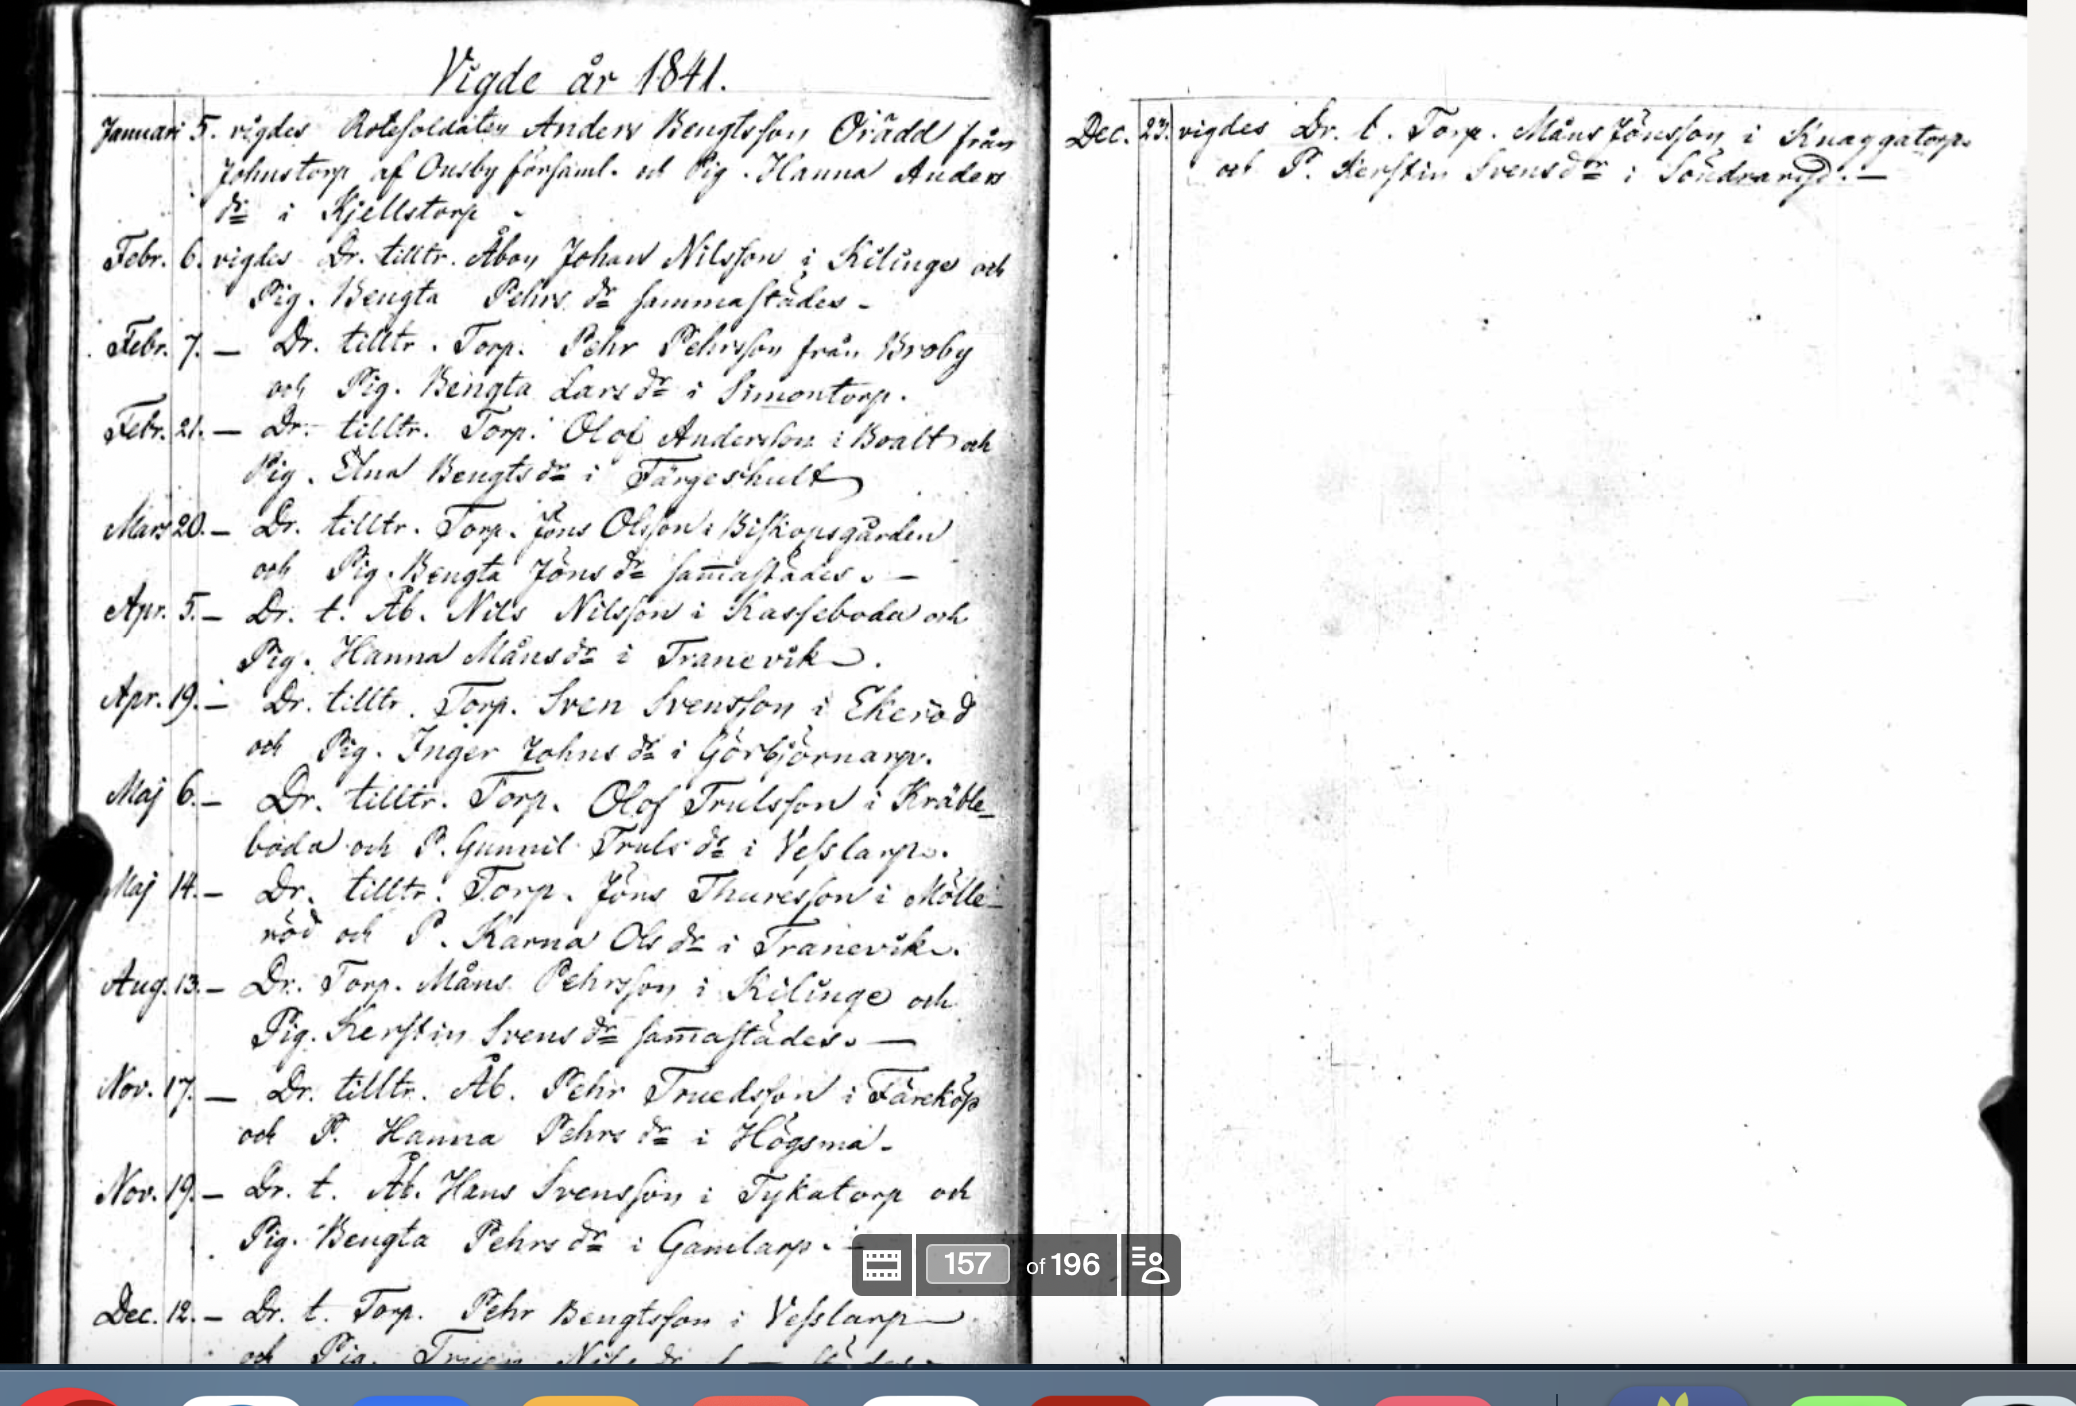 Vigde år 1841.
Januari 5. vigdes Rotesoldaten Anders Bengtsson Orädd från
Johnstorp af Ousby församl. och Pig. Hanna Anders
dr i Kjellstorp -
Febr. 6. vigdes Dr. tilltr. Åbon Johan Nilsson i Kilinge och
Pig. Bengta Pehrs dr sammastädes -
Febr. 7. — Dr. tilltr. Torp. Pehr Pehrsson från Broby
och Pig. Bengta Lars dr i Simontorp.
Febr. 21. — Dr. tilltr. Torp. Olof Andersson i Boalt och
Pig. Elna Bengts dr i Färgeshult
Mars 20. — Dr. tilltr. Torp. Jöns Olsson i Biskopsgården
och Pig. Bengta Jöns dr sam̄astädes. —
Apr. 5. — Dr. t. Åb. Nils Nilsson i Kasseboda och
Pig. Hanna Måns dr i Tranevik.
Apr. 19. — Dr. tilltr. Torp. Sven Svensson i Ekeröd
och Pig. Inger Johns dr i Görbjörnarp.
Maj 6. — Dr. tilltr. Torp. Olof Trulsson i Kräble_
boda och P. Gunnil Truls dr i Vesslarp.
Maj 14. — Dr. tilltr. Torp. Jöns Thuresson i Mölle_
röd och P. Karna Ols dr i Tranevik.
Aug. 13. — Dr. Torp. Måns Pehrsson i Kilinge och
Pig. Kerstin Svens dr sam̄astädes. —
Nov. 17. — Dr. tilltr. Åb. Pehr Truedsson i Färeköp
och P. Hanna Pehrs dr i Högsma -
Nov. 19. — Dr. t. Åb. Hans Svensson i Tykatorp och
Pig. Bengta Pehrs dr i Gamlarp. —
Dec. 12. — Dr. t. Torp. Pehr Bengtsson i Vesslarp
och Pig. Nils dr
Dec. 23. vigdes Dr. t. Torp. Måns Jönsson i Knaggatorp.
och P. Kerstin Svens dr i —
157 of 196